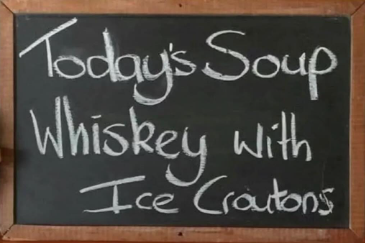 Today's Soup
Whiskey with
Ice Croutons